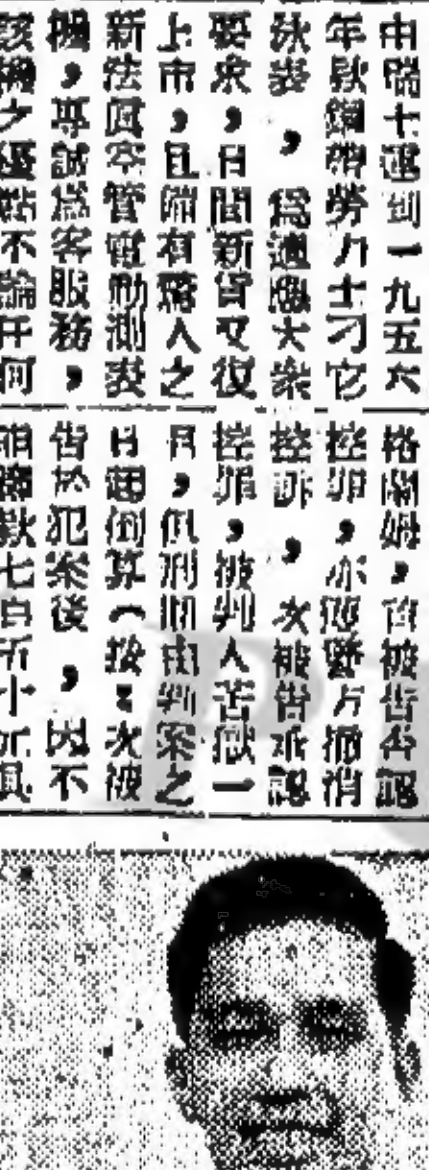 由瑞士運到一九五六
年欵鋼帶勞力士刁它
錶，為適應大衆
要求，日間新貨又復
上市，且備有驚人之
新法眞空管電動測錶
機，專誠為客服務，
該機之優點不論任何
格蘭姆，首被告否認
控罪，亦獲警方撤消
控訴，次被告承認
控罪，被判入苦獄一
月，但刑期由判案之
日起倒算（按：次被
告於犯案後，因不
欵七百